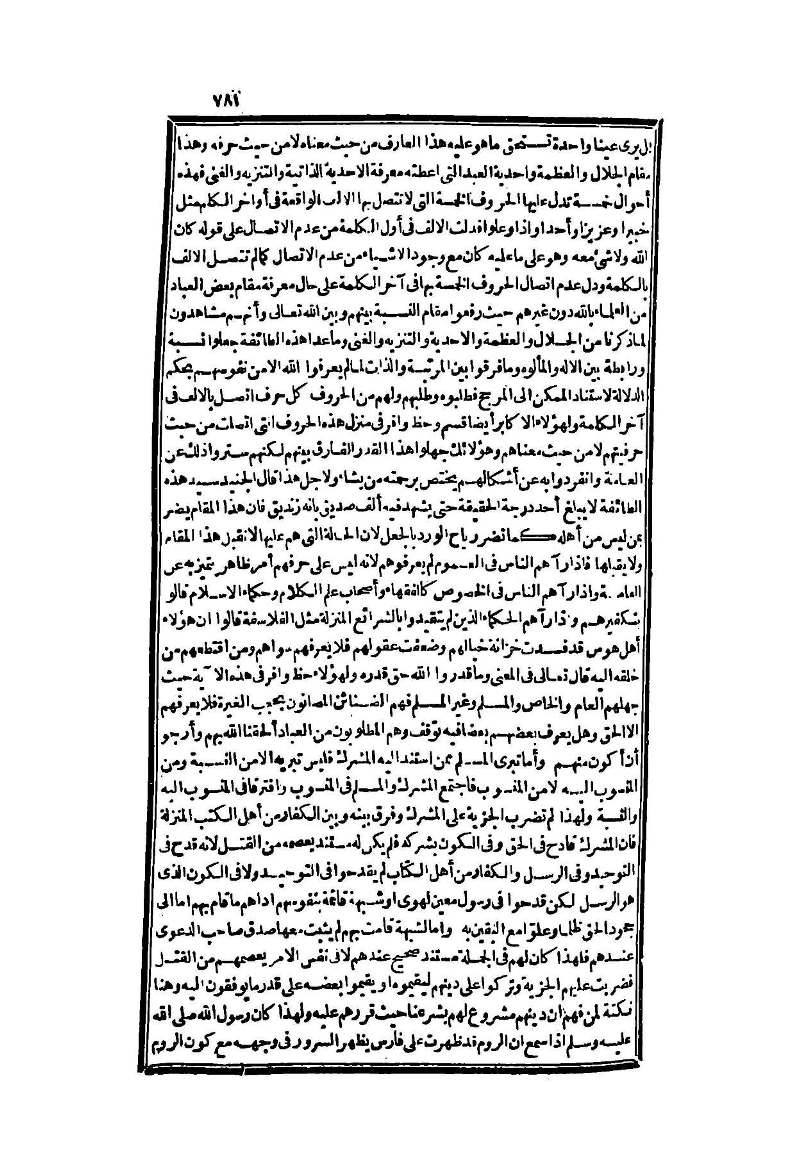 ٧٨١
بل يرى عينا واحدة تستحق ماهو عليه هذا العارف من حيث معناه لا من حيث حرفه وهذا
مقام الجلال والعظمة واحدية العبد التى اعطته معرفة الاحدية الذاتية والتنزيه والغنى فهذه
أحوال خمسة تدل عليها الحروف الخمسة التى لا تتصل بها الالف الواقعة فى أواخر الكلم مثل
خبيرا وعزيزا وأحدا واذا وعلوا فدلت الالف فى أول الكلمة من عدم الاتصال على قوله كان
الله ولا شئ معه وهو على ما عليه كان مع وجود الاشياء من عدم الاتصال كما لم تتصل الالف
بالكلمة ودل عدم اتصال الحروف الخمسة بها فى آخر الكلمة على حال معرفة مقام بعض العباد
من العلماء بالله دون غيرهم حيث رفعوا مقام النسبة بينهم وبين الله تعالى وأنهم مشاهدون
لما ذكرنا من الجلال والعظمة والاحدية والتنزيه والغنى وماعدا هذه الطائفة جعلوا نسبة
ورابطة بين الاله والمألوه وما فرقوا بين المرتبة والذات لما لم يعرفوا الله الا من نفوسهم بحكم
الدلالة لاستناد الممكن الى المرجح فطلبوه وطلبهم ولهم من الحروف كل حرف اتصل بالالف فى
آخر الكلمة ولهؤلاء الاكابر أيضا قسم وحظ وافر فى منزل هذه الحروف التى اتصلت من حيث
حرفيتهم لا من حيث معناهم وهؤلائك جهلوا هذا القدر الفارق بينهم لكنهم ستروا ذلك عن
العامة وانفردوا به عن أشكالهم يختص برحمته من يشاء ولاجل هذا قال الجنيد سيد هذه
الطائفة لا يبلغ أحد درجة الحقيقة حتى يشهد فيه ألف صديق بانه زنديق فان هذا المقام يضر
بمن ليس من أهله كما تضر رياح الورد بالجعل لان الحالة التى هم عليها لا تقبل هذا المقام
ولا يقبلها فاذا رآهم الناس فى العموم لم يعرفوهم لانه ليس على حرفهم أمر ظاهر يتميز به عن
العامة واذا رآهم الناس فى الخصوص كالفقهاء وأصحاب علم الكلام وحكماء الاسلام قالوا
بتكفيرهم واذا رآهم الحكماء الذين لم يتقيدوا بالشرائع المنزلة مثل الفلاسفة قالوا ان هؤلاء
أهل هوس قد فسدت خزانة خيالهم وضعفت عقولهم فلا يعرفهم سواهم ومن اقتطعهم من
خلقه اليه قال تعالى فى المعنى وما قدروا الله حق قدره ولهؤلاء حظ وافر فى هذه الآية حيث
جهلهم العام والخاص والمسلم وغير المسلم فهم الضنائن المصانون بحجب الغيرة فلا يعرفهم
الا الحق وهل يعرف بعضهم بعضا فيه توقف وهم المطلوبون من العباد ألحقنا الله بهم وأرجو
أن أكون منهم وأما تبرى المسلم ممن استند اليه المشرك فليس تبريه الا من النسبة ومن
المنسوب اليه لا من المنسوب فاجتمع المشرك والمسلم فى المنسوب وافترقا فى المنسوب اليه
والنسبة ولهذا لم تضرب الجزية على المشرك وفرق بينه وبين الكفار من أهل الكتب المنزلة
فان المشرك قادح فى الحق وفى الكون بشركه فلم يكن له مستند يعصمه من القتل لانه قدح فى
التوحيد وفى الرسل والكفار من أهل الكتاب لم يقدحوا فى التوحيد ولا فى الكون الذى
هو الرسل لكن قدحوا فى رسول معين لهوى أو شبهة قائمة بنفوسهم اداهم ما قام بهم اما الى
جحود الحق ظلما وعلوا مع اليقين به واما لشبهة قامت بهم لم يثبت معها صدق صاحب الدعوى
عندهم فلهذا كان لهم فى الجملة مستند صحيح عندهم لا فى نفس الامر يعصمهم من القتل
فضربت عليهم الجزية وتركوا على دينهم ليقيموه أو يقيموا بعضه على قدر ما يوفقون اليه وهنا
نكتة لمن فهم ان دينهم مشروع لهم بشرعنا حيث قررهم عليه ولهذا كان رسول الله صلى الله
عليه وسلم اذا سمع ان الروم قد ظهرت على فارس يظهر السرور فى وجهه مع كون الروم